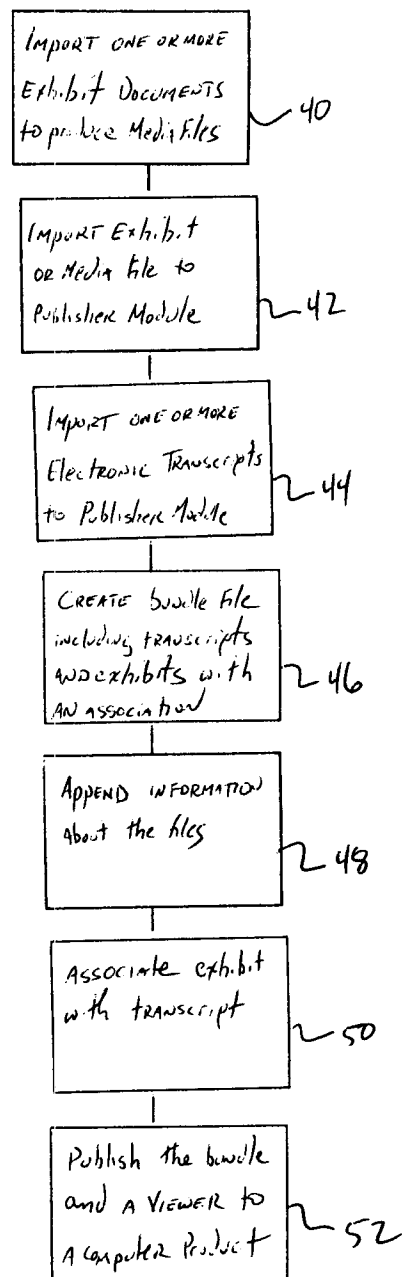 IMPORT ONE OR MORE
Exhibit DOCUMENTS
to produce Media Files
40
IMPORT Exhibit
OR Media File to
Publisher Module
42
IMPORT ONE OR MORE
Electronic Transcripts
to Publisher Module
44
CREATE bundle file
including transcripts
AND exhibits with
AN ASSOCIATION
46
APPEND INFORMATION
About the files
48
ASSOCIATE exhibit
with transcript
50
Publish the bundle
and A VIEWER to
A Computer Product
52